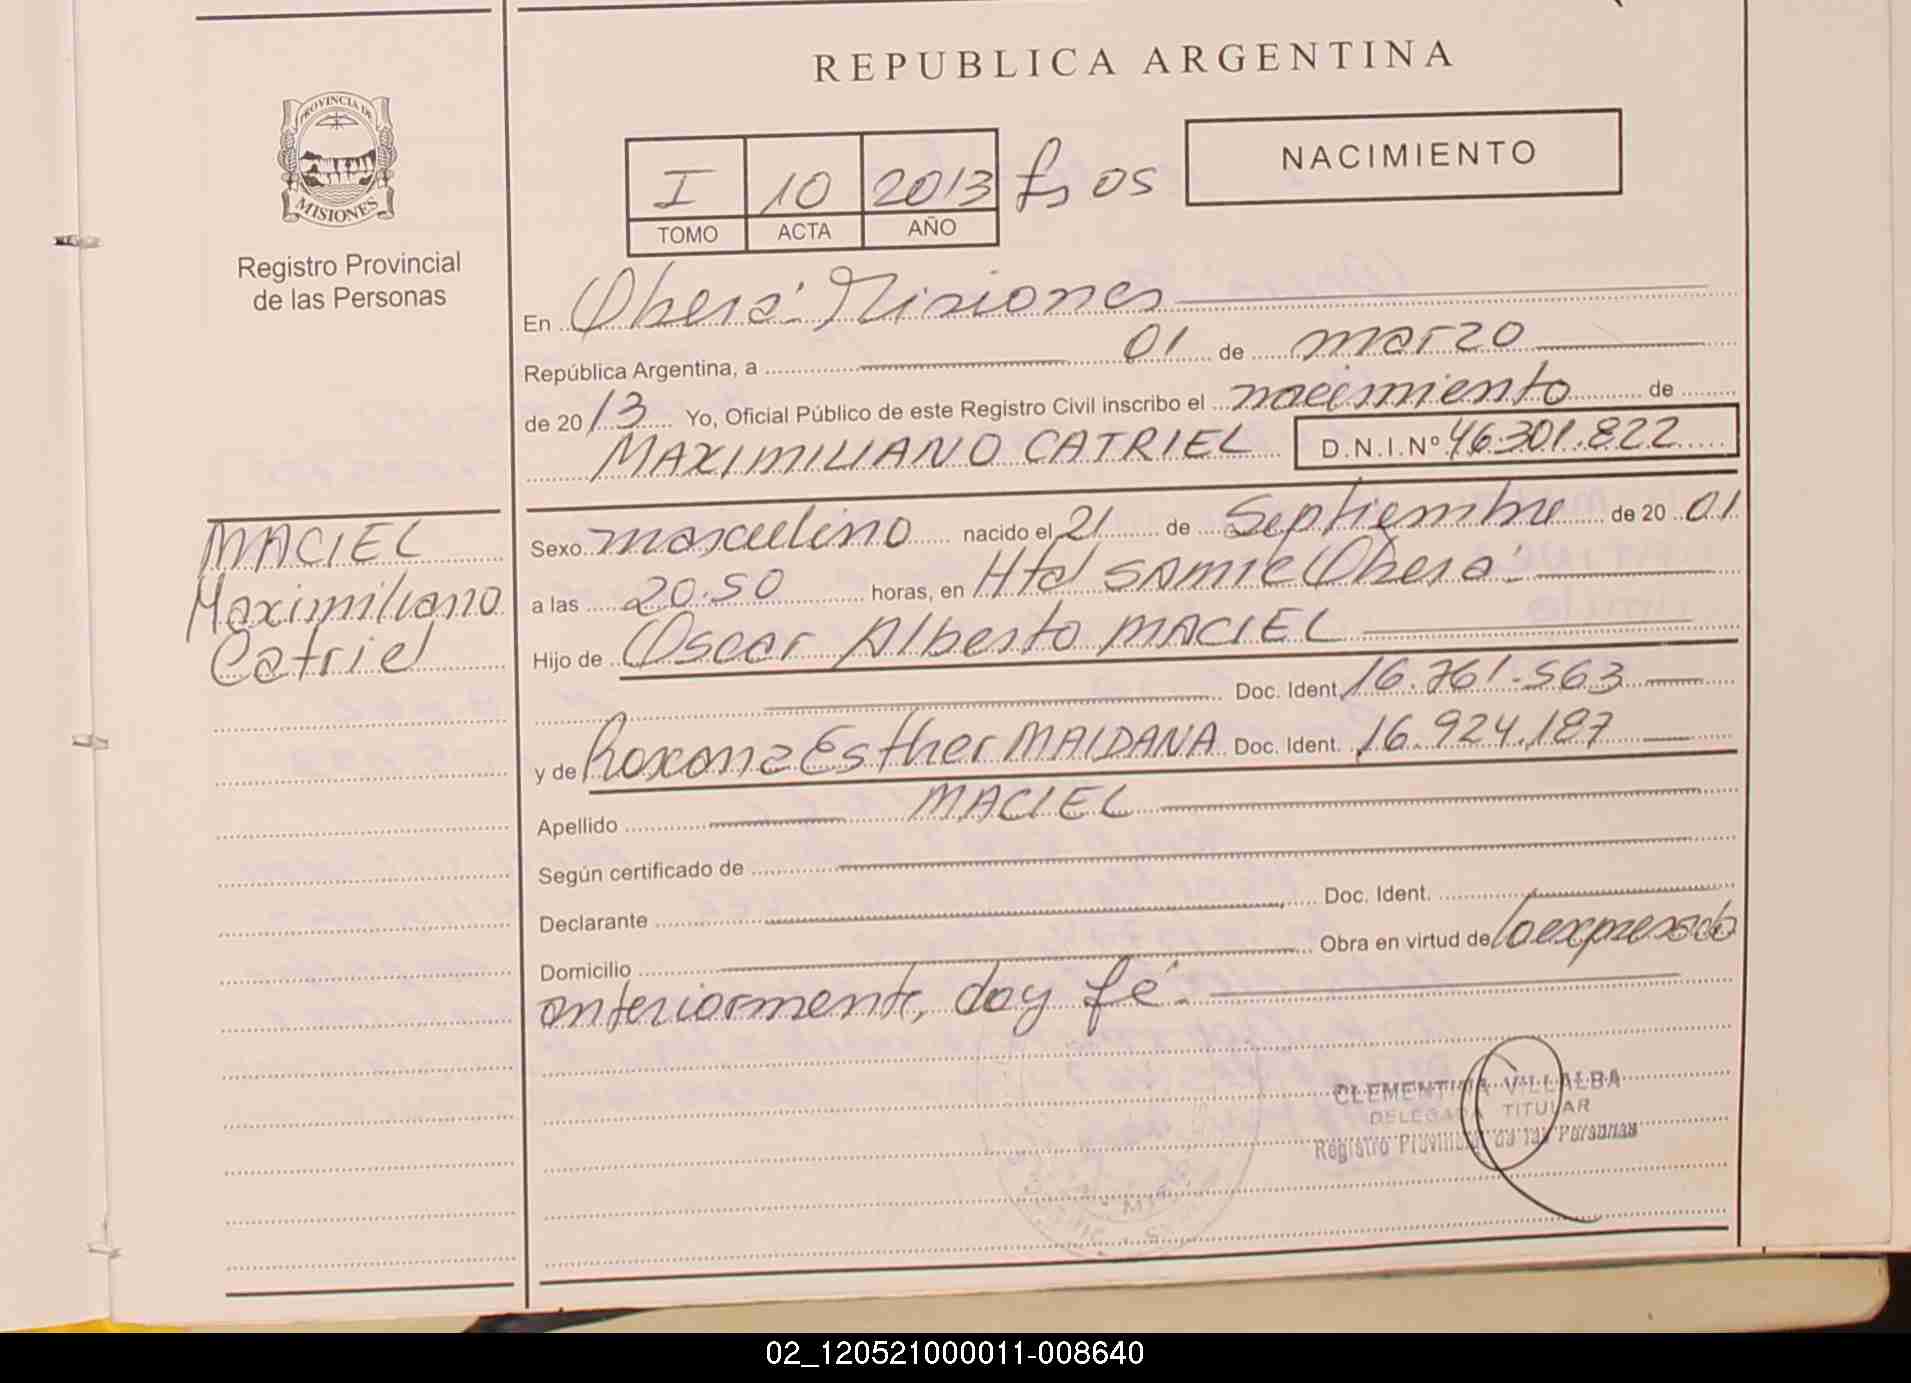 REPUBLICA ARGENTINA
PROVINCIA DE
MISIONES
Registro Provincial
de las Personas
I 10 2013 fs 05
TOMO ACTA AÑO
NACIMIENTO
En Oberá: Misiones
República Argentina, a 01 de marzo
de 2013 Yo, Oficial Público de este Registro Civil inscribo el nacimiento de
MAXIMILIANO CATRIEL D.N.I.Nº 46.301.822
MACIEL
Maximiliano
Catriel
Sexo masculino nacido el 21 de Septiembre de 2001
a las 20.50 horas, en Htal SAMIC Oberá.
Hijo de Oscar Alberto MACIEL
Doc. Ident. 16.761.563
y de Roxana Esther MAIDANA Doc. Ident. 16.924.187
Apellido MACIEL
Según certificado de
Declarante Doc. Ident.
Domicilio Obra en virtud de lo expresado
anteriormente, doy fé.
CLEMENTINA VILLALBA
DELEGADA TITULAR
Registro Provincial de las Personas
02_120521000011-008640